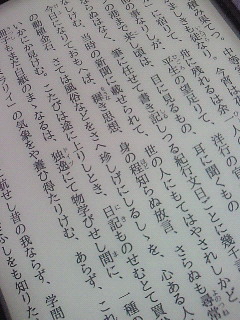 積み果てつ。中等
ましきも徒なり。今宵は夜
宿りて、舟に残れるは余
事なりしが、平生の望足りて、洋行の官
港まで来し頃は、目に見るもの、耳に聞くもの
はなく、筆に任せて書き記しつる紀行文日ごとに幾千
けむ、当時の新聞に載せられて、世の人にもてはやされしかど
今日になりておもへば、穉き思想、身の程知らぬ放言、さらぬも尋常
動植金石、さては風俗などをさへ珍しげにしるしゝを、心ある人
にか見けむ。こたびは途に上りしとき、日記ものせむとて買
もまだ白紙のまゝなるは、独逸にて物学びせし間に、一種
ミラリイ」の気象をや養ひ得たりけむ、あらず、これ
に航せし昔の我ならず、学問
きふしをも知りた